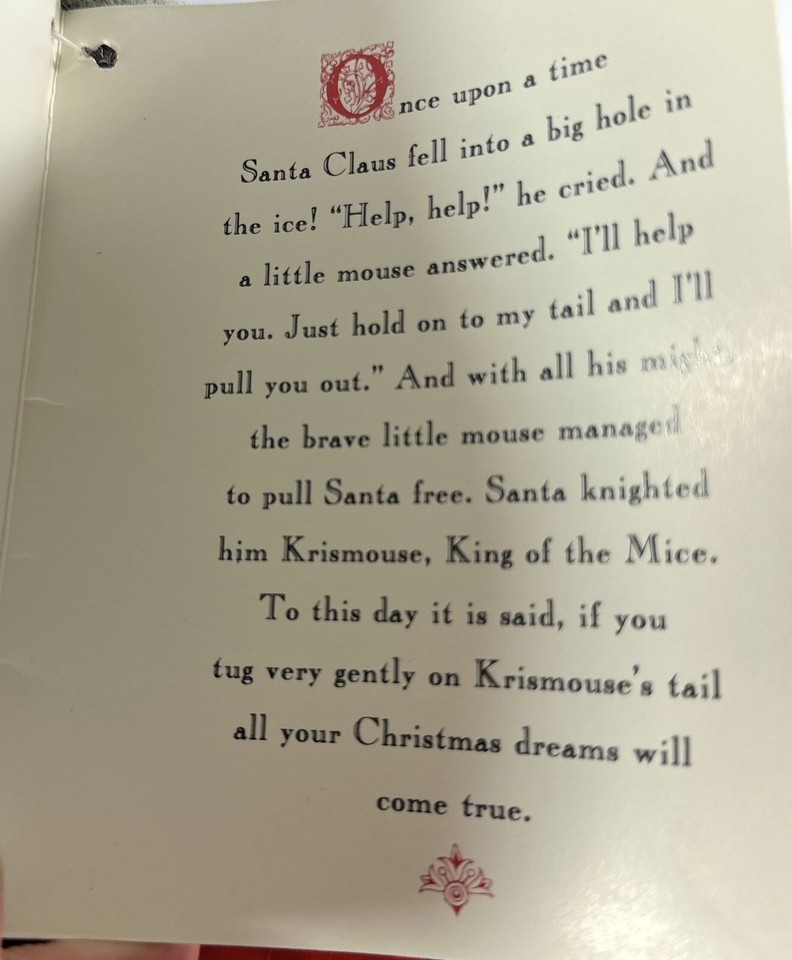 Once upon a time
Santa Claus fell into a big hole in
the ice! “Help, help!” he cried. And
a little mouse answered. “I’ll help
you. Just hold on to my tail and I’ll
pull you out.” And with all his might,
the brave little mouse managed
to pull Santa free. Santa knighted
him Krismouse, King of the Mice.
To this day it is said, if you
tug very gently on Krismouse’s tail
all your Christmas dreams will
come true.